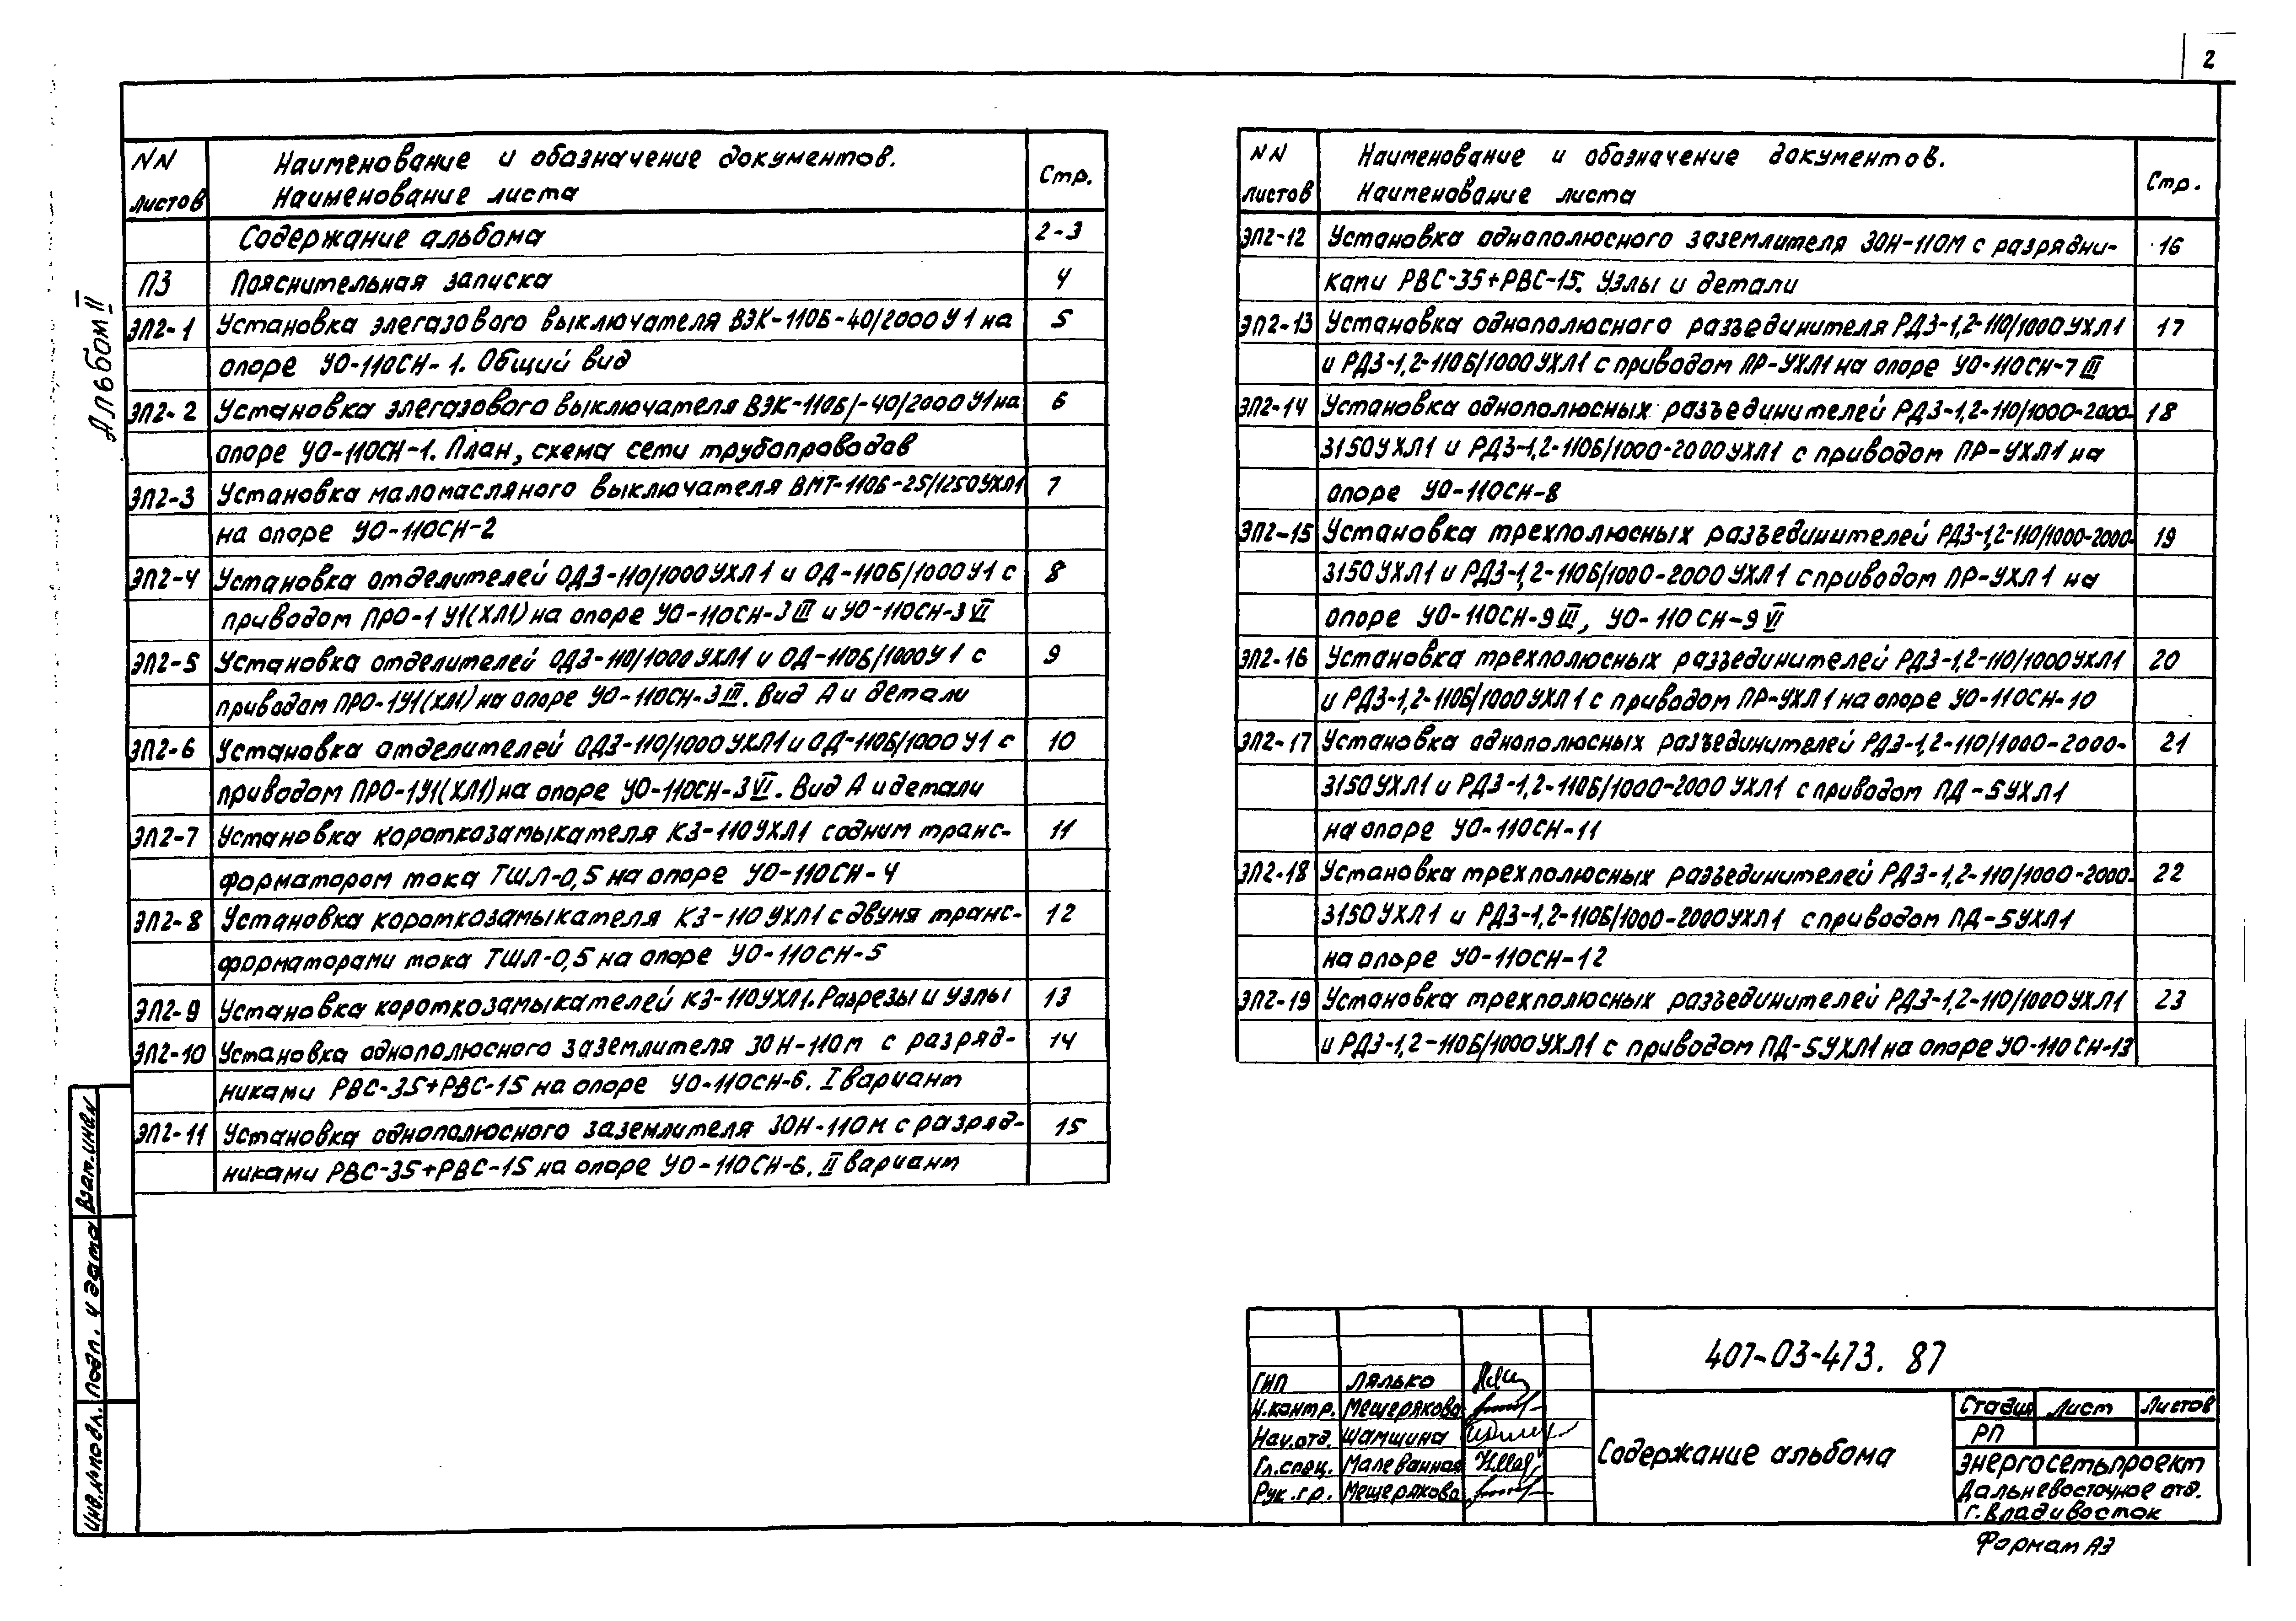 2
Альбом II
NN листов
Наименование и обозначение документов.
Наименование листа
Стр.
Содержание альбома 2-3
ПЗ Пояснительная записка 4
ЭП2-1 Установка элегазового выключателя ВЭК-110Б-40/2000У1 на 5
опоре УО-110СН-1. Общий вид
ЭП2-2 Установка элегазового выключателя ВЭК-110Б/-40/2000У1 на 6
опоре УО-110СН-1. План, схема сети трубопроводов
ЭП2-3 Установка маломасляного выключателя ВМТ-110Б-25/1250УХЛ1 7
на опоре УО-110СН-2
ЭП2-4 Установка отделителей ОДЗ-110/1000УХЛ1 и ОД-110Б/1000У1 с 8
приводом ПРО-1У1(ХЛ1) на опоре УО-110СН-3III и УО-110СН-3VI
ЭП2-5 Установка отделителей ОДЗ-110/1000УХЛ1 и ОД-110Б/1000У1 с 9
приводом ПРО-1У1(ХЛ1) на опоре УО-110СН-3III. Вид А и детали
ЭП2-6 Установка отделителей ОДЗ-110/1000УХЛ1 и ОД-110Б/1000У1 с 10
приводом ПРО-1У1(ХЛ1) на опоре УО-110СН-3VI. Вид А и детали
ЭП2-7 Установка короткозамыкателя КЗ-110УХЛ1 с одним транс- 11
форматором тока ТШЛ-0,5 на опоре УО-110СН-4
ЭП2-8 Установка короткозамыкателя КЗ-110УХЛ1 с двумя транс- 12
форматорами тока ТШЛ-0,5 на опоре УО-110СН-5
ЭП2-9 Установка короткозамыкателей КЗ-110УХЛ1. Разрезы и узлы 13
ЭП2-10 Установка однополюсного заземлителя ЗОН-110М с разряд- 14
никами РВС-35+РВС-15 на опоре УО-110СН-6. I вариант
ЭП2-11 Установка однополюсного заземлителя ЗОН-110М с разряд- 15
никами РВС-35+РВС-15 на опоре УО-110СН-6. II вариант
NN листов
Наименование и обозначение документов.
Наименование листа
Стр.
ЭП2-12 Установка однополюсного заземлителя ЗОН-110М с разрядни- 16
ками РВС-35+РВС-15. Узлы и детали
ЭП2-13 Установка однополюсного разъединителя РДЗ-1,2-110/1000УХЛ1 17
и РДЗ-1,2-110Б/1000УХЛ1 с приводом ПР-УХЛ1 на опоре УО-110СН-7III
ЭП2-14 Установка однополюсных разъединителей РДЗ-1,2-110/1000-2000- 18
3150УХЛ1 и РДЗ-1,2-110Б/1000-2000УХЛ1 с приводом ПР-УХЛ1 на
опоре УО-110СН-8
ЭП2-15 Установка трехполюсных разъединителей РДЗ-1,2-110/1000-2000- 19
3150УХЛ1 и РДЗ-1,2-110Б/1000-2000УХЛ1 с приводом ПР-УХЛ1 на
опоре УО-110СН-9III, УО-110СН-9VI
ЭП2-16 Установка трехполюсных разъединителей РДЗ-1,2-110/1000УХЛ1 20
и РДЗ-1,2-110Б/1000УХЛ1 с приводом ПР-УХЛ1 на опоре УО-110СН-10
ЭП2-17 Установка однополюсных разъединителей РДЗ-1,2-110/1000-2000- 21
3150УХЛ1 и РДЗ-1,2-110Б/1000-2000УХЛ1 с приводом ПД-5УХЛ1
на опоре УО-110СН-11
ЭП2-18 Установка трехполюсных разъединителей РДЗ-1,2-110/1000-2000- 22
3150УХЛ1 и РДЗ-1,2-110Б/1000-2000УХЛ1 с приводом ПД-5УХЛ1
на опоре УО-110СН-12
ЭП2-19 Установка трехполюсных разъединителей РДЗ-1,2-110/1000УХЛ1 23
и РДЗ-1,2-110Б/1000УХЛ1 с приводом ПД-5УХЛ1 на опоре УО-110СН-13
Взам.инв.№
Подп. и дата
Инв.№подл.
ГИП Лялько
Н.контр. Мещерякова
Нач.отд. Шамшина
Гл.спец. Малеванная
Рук.гр. Мещерякова
407-03-473. 87
Содержание альбома
Стадия Лист Листов
РП
Энергосетьпроект
Дальневосточное отд.
г.Владивосток
Формат А3